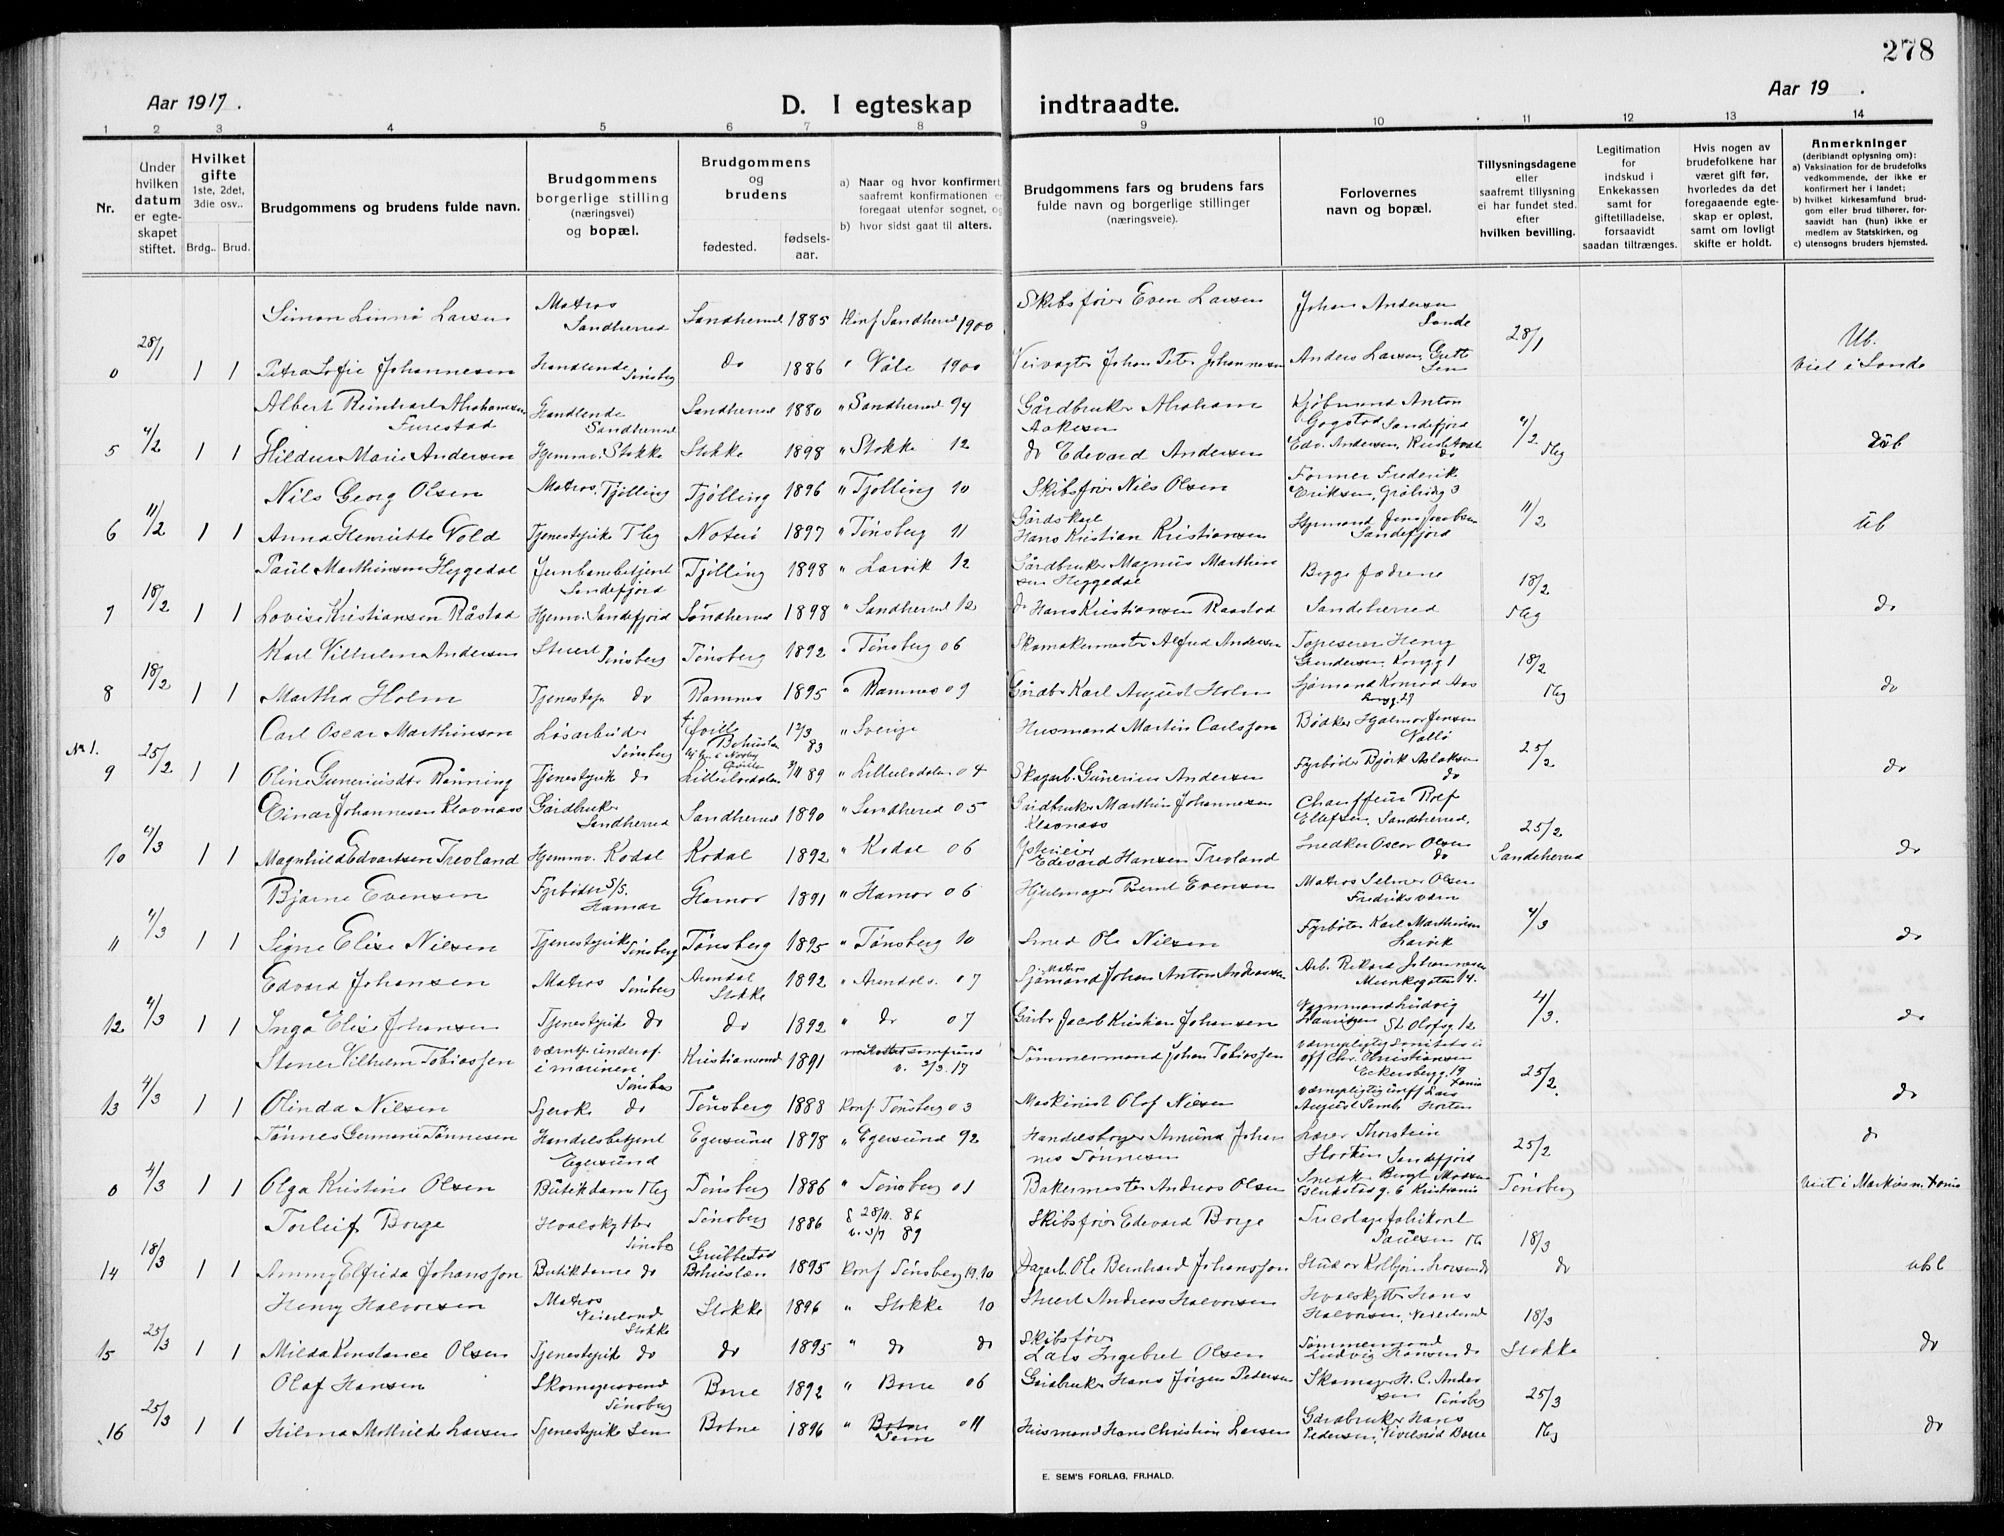 278
Aar 1917.
D. I egteskap indtraadte.
Aar 19 .
1 2 3 4 5 6 7 8 9 10 11 12 13 14
Nr.
Under hvilken datum er egte-skapet stiftet.
Hvilket gifte
1ste, 2det, 3die osv..
Brdg.. Brud.
Brudgommens og brudens fulde navn.
Brudgommens borgerlige stilling (næringsvei) og bopæl.
Brudgommens og brudens
fødested.
fødsels-aar.
a) Naar og hvor konfirmert, saafremt konfirmationen e foregaat utenfor sognet, og
b) hvor sidst gaat til alters.
Brudgommens fars og brudens fars fulde navn og borgerlige stillinger (næringsveie).
Forlovernes navn og bopæl.
Tillysningsdagene eller saafremt tillysning ei har fundet sted. efter hvilken bevilling.
Legitimation for indskud i Enkekassen samt for giftetilladelse, forsaavidt saadan tiltrænges.
Hvis nogen av brudefolkene har været gift før, hvorledes da det foregaaende egte-skap er opløst, samt om lovligt skifte er holdt.
Anmerkninger (deriblandt oplysning om):
a) Vaksination for de brudefolks vedkommende, der ikke er konfirmert her i landet;
b) hvilket kirkesamfund brud-gom eller brud tilhører, for-saavidt han (hun) ikke er medlem av Statskirken, og
c) utensogns bruders hjemsted.
Simon Linnö Larsen Matros Sandherred Sandherred 1885 Konf Sandherred 1900 Skibsfører Even Larsen Johan Andersen Sande
0 28/1 1 1 Petra Sofie Johannesen Handlende Tønsberg do 1886 " Våle 1900 Veivogter Johan Peter Johannesen Anders Larsen, Sem 28/1 Ub. Viet i Sande
Albert Reinhart Abrahamsen Furestad Handlende Sandherred Sandherred 1880 " Sandherred 94 Gårdbruker Abraham Aakesen Kjøbmand Anton Gogstad Sandefjord
5 4/2 1 1 Hildur Marie Andersen Hjemmv. Stokke Stokke 1898 " Stokke 12 do Edvard Andersen Edv. Andersen, do 4/2 Tbg ub
Nils Georg Olsen Matros, Tjölling Tjölling 1896 " Tjölling 10 Skibsfører Nils Olsen Former Frederik Eriksen, 3
6 11/2 1 1 Anna Henriette Vold Tjenestepike Tbg Noterö 1897 " Tönsberg 11 Gårdskarl Hans Kristian Kristiansen Styrmand Jens Jacobsen Sandefjord 11/2 Ub
Paul Marthinsen Heggedal Jernbanebetjent Sandefjord Tjölling 1898 " Larvik 12 Gårdbruker Magnus Marthinsen Heggedal Begge fædrene
7 18/2 1 1 Lovise Kristiansen Råstad Hjemmv. Sandefjord Sandherred 1898 " Sandherred 12 do Hans Kristiansen Raastad Sandeherred 18/2 Tbg do
Karl Vilhelm Andersen Stuert Tönsberg Tönsberg 1892 " Tönsberg 06 Skomakermester Alfred Andersen Tapeserer Henry Gundersen, Kongg 1
8 18/2 1 1 Martha Holm Tjenestepi do Ramnes 1895 " Ramnes 09 Gårdbr Karl August Holm Sjømand Konrad Aas Kongg. 29 18/2 Tbg do
Nr 1. Carl Oscar Marthinson Løsarbeider Tönsberg Qville Bohuslän 12/3 83 " Sverige Husmand Martin Carlsson Bødker Hjalmar Jensen Vallö
9 25/2 1 1 Oline Guneriusdtr Rønning Tjenestepike do Lilleelvdalen 89 " Lilleelvdalen 04 Skogarb. Gunerius Andersen Fyrbøder Bjørk Aslaksen do 25/2 do
Einar Johannesen Klavnæss Gårdbruker Sandherred Sandherred 1890 " Sandherred 05 Gårdbruker Marthin Johannesen Klavnæss Chauffeur Rolf Ellefsen, Sandeherred,
10 4/3 1 1 Magnhild Edvartsen Trevland Hjemmv. Kodal Kodal 1892 " Kodal 06 Edvard Hansen Trevland Snedker Oscar Olsen do 25/2 Sandeherred do
Bjarne Evensen Fyrbøder S/S. Hamar Hamar 1891 " Hamar 06 Hjulmager Bernt Evensen Matros Selmer Olsen Fredriksværn
11 4/3 1 1 Signe Elise Nilsen Tjenestepike Tönsberg Tönsberg 1895 " Tönsberg 10 Smed Ole Nilsen Fyrbøter Karl Marthinsen Larvik 4/3 do
Edvard Johansen Matros Tönsberg Arendal 1892 " Arendal 07 Matros Sjømand Johan Anton Andreassen Arb. Rikard Johannesen Munkegaten 14.
12 4/3 1 1 Inga Elise Johansen Tjenestepik do Stokke do 1892 " do 07 Gårbr Jacob Kristian Johansen Vognmand Ludvig St. Olafsg. 12 4/3. do
Stener Vilhelm Tobiassen værnepl. underof. i marinen Tönsberg Kristiansand 1891 2/3. 17 Tømmermand Johan Tobiassen værnepligtig off Chr. Christiansen Eckersbergg. 19 Xania
13 4/3 1 1 Olinda Nilsen Syerske do Tönsberg 1888 Konf Tönsberg 03 Maskinist Olaf Nilsen værnepligtig uoff Lars August Horten 25/2. do
Tønnes Tønnesen Handelsbetjent Egersund Egersund 1878 " Egersund 92 Handelsborger Amund Johannes Tønnesen Lærer Thorstein Sandefjord
0 4/3 1 1 Olga Kristine Olsen Butikdame Tbg Tönsberg 1886 " Tönsberg 01 Bakermester Andreas Olsen Snedk Bernt 6 Kristiania 25/2 Tönsberg do Viet i Markus m. Xania
Torleif Borge Hvalskytter Tönsberg Tönsberg 1886 f 28/11. 86 v. 5/9 89 Skibsfører Edvard Borge Tricotagefabrikant Tbg
14 18/3 1 1 Ammy Elfrida Johansson Butikdame do Grebbestad Bohuslen 1895 Konf Tönsberg 1910 Dagarb. Ole Bernhard Johansson Stud. Kolbjørn Larsen do 18/3 do ubl
Henry Halvorsen Matros Veierland Stokke Stokke 1896 " Stokke 10 Stuert Andreas Halvorsen Hvalskytter Hans Halvorsen, Veierland
15 25/3 1 1 Milda Konstance Olsen Tjenestepik do do 1895 " do do Skibsfører Lars Ingebret Olsen Tømmermand Ludvig Hansen do 18/3 Stokke do
Olaf Hansen Skomagersvend Tönsberg Borre 1892 " Borre 06 Gårdbruker Hans Jørgen Pedersen Skomager H. C. Andersen Tönsberg
16 25/3 1 1 Hilma Mathilde Larsen Tjenestepike Sem Botne 1896 " Botne Sem 011 Husmand Hans Christian Larsen Gårdbruker Hans Pedersen, Borre 25/3 Tbg do
E. SEM'S FORLAG, FR.HALD.